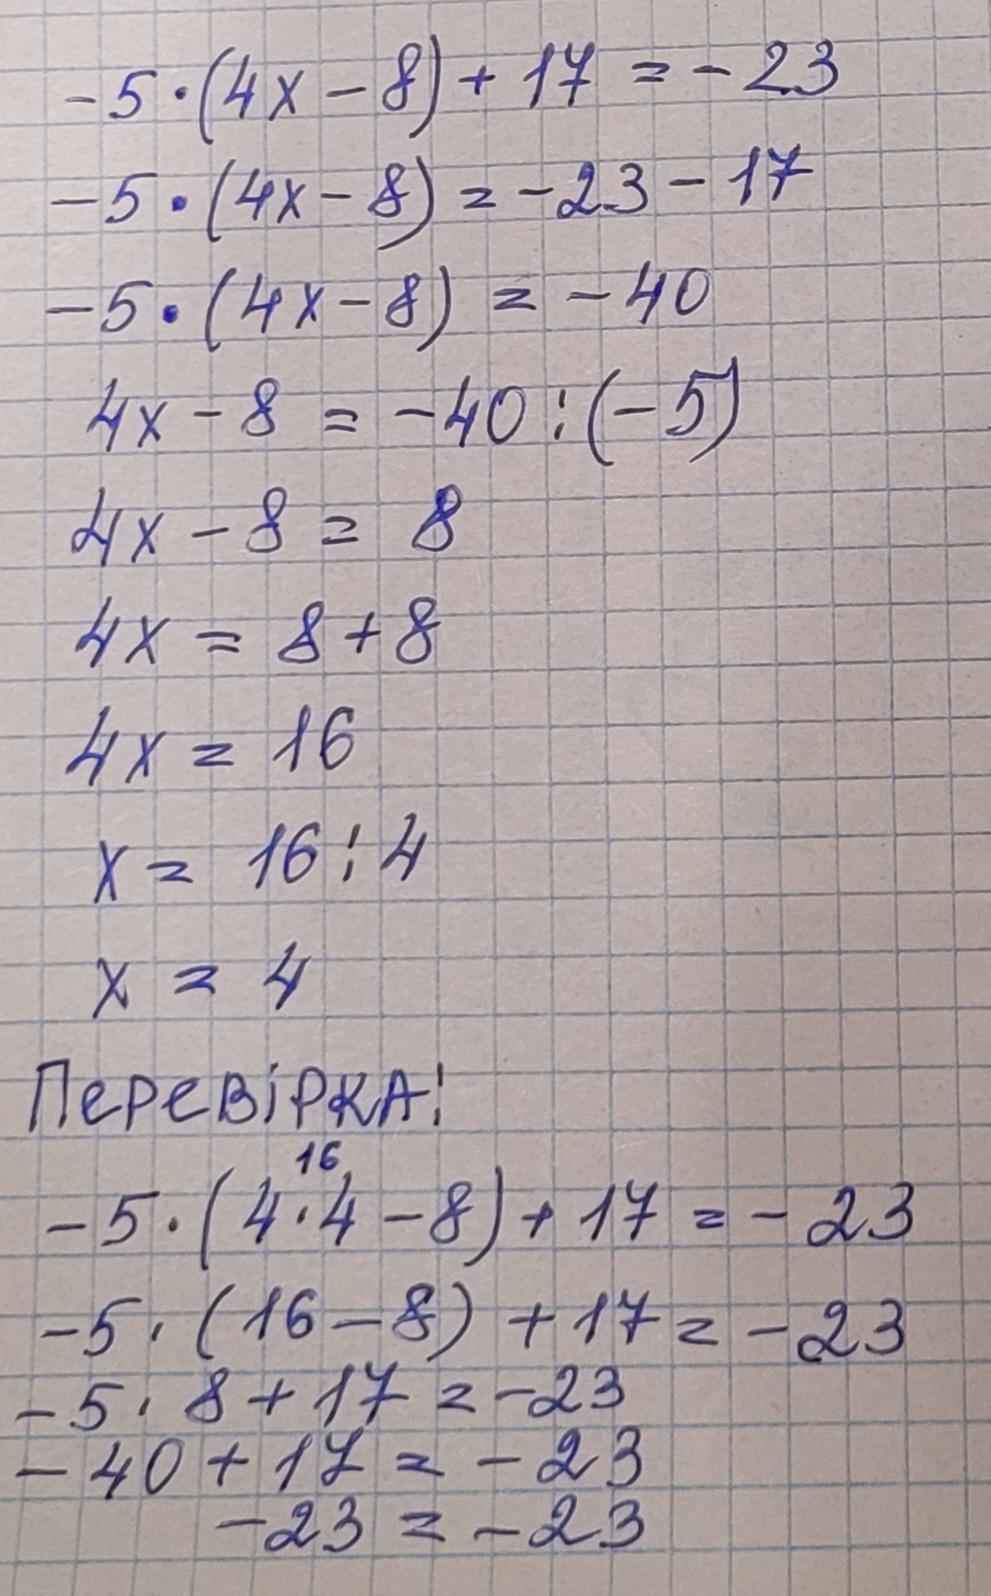 -5·(4x-8)+17=-23
-5·(4x-8)=-23-17
-5·(4x-8)=-40
4x-8=-40:(-5)
4x-8=8
4x=8+8
4x=16
x=16:4
x=4
Перевірка!
16
-5·(4·4-8)+17=-23
-5·(16-8)+17=-23
-5·8+17=-23
-40+17=-23
-23=-23